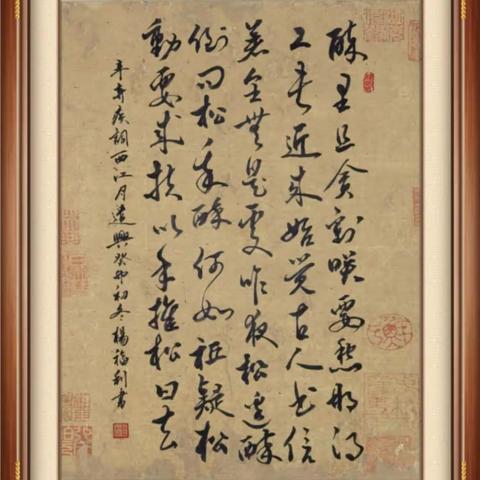 醉里且貪歡笑要愁那得
工夫近来始覺古人书信
着全無是處昨夜松邊醉
倒问松我醉何如祗疑松
動要来扶以手推松曰去
辛弃疾詞西江月遣興癸卯初冬楊福利書